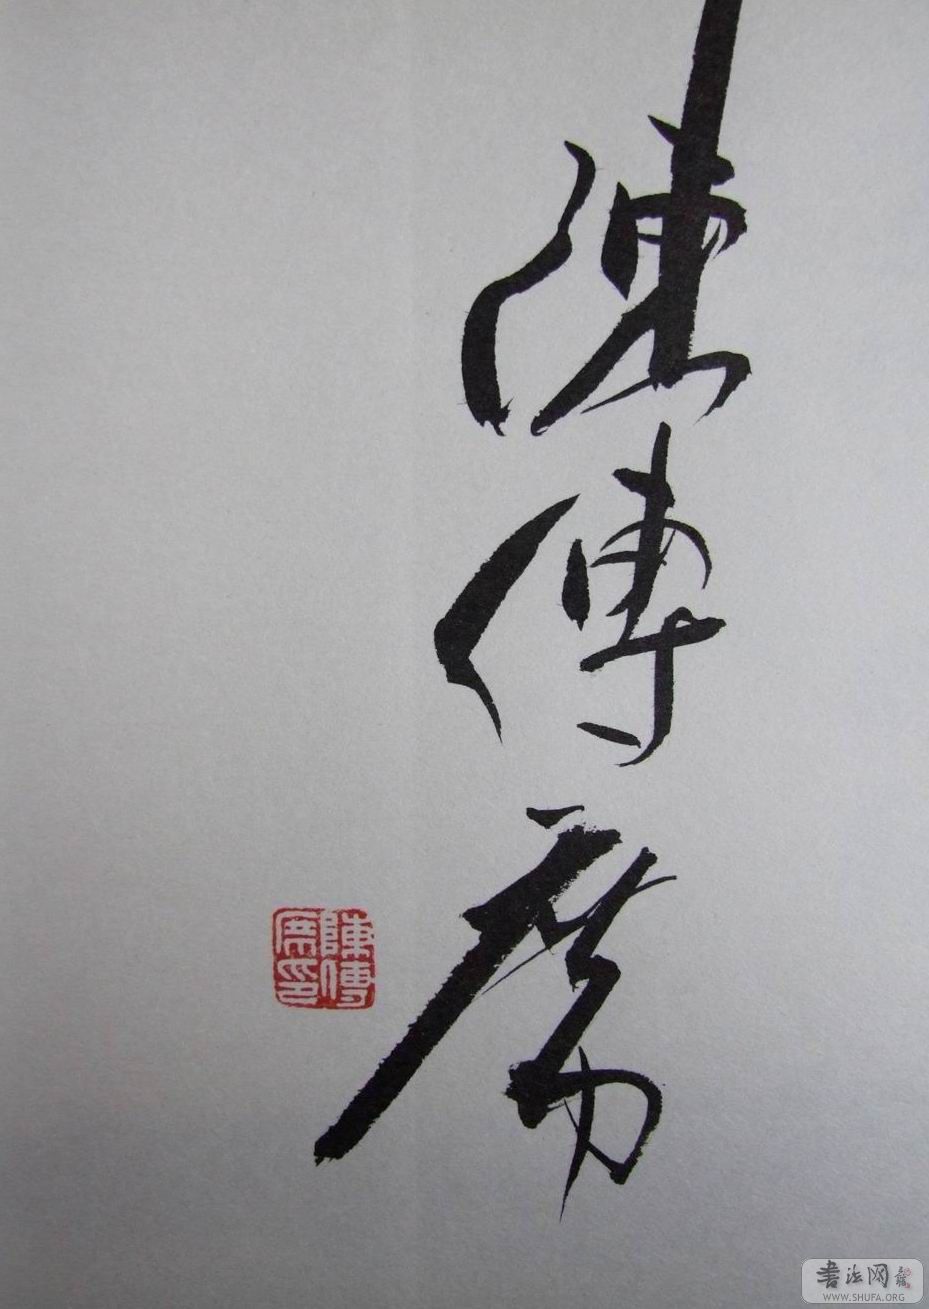 陳傳席
陳傳席印
書法网
WWW.SHUFA.ORG